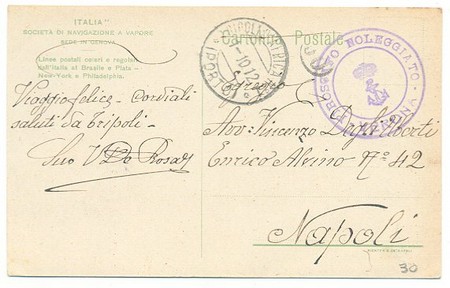 "ITALIA"
SOCIETÀ DI NAVIGAZIONE A VAPORE
SEDE IN GENOVA
Linee postali celeri e regolari
dall'Italia al Brasile e Plata -
New-York e Philadelphia.
Cartolina Postale
TRIPOLI
10 12
PIROSCAFO NOLEGGIATO
Viaggio felice - Cordiali
saluti da Tripoli -
Suo V De Rosa
Avv: Vincenzo Degli Uberti
Enrico Alvino Nº 42
Napoli
30